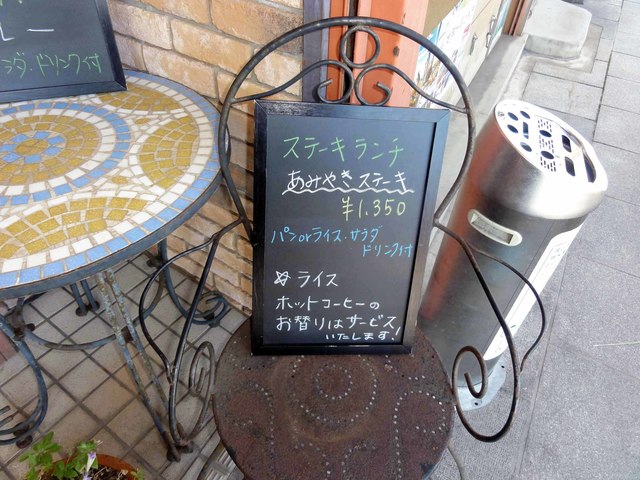 ー
ンダ・ドリンク付
ステーキランチ
あみやきステーキ
¥1.350
パンorライス・サラダ
ドリンク付
☆ライス
ホットコーヒーの
お替りはサービス
いたします!